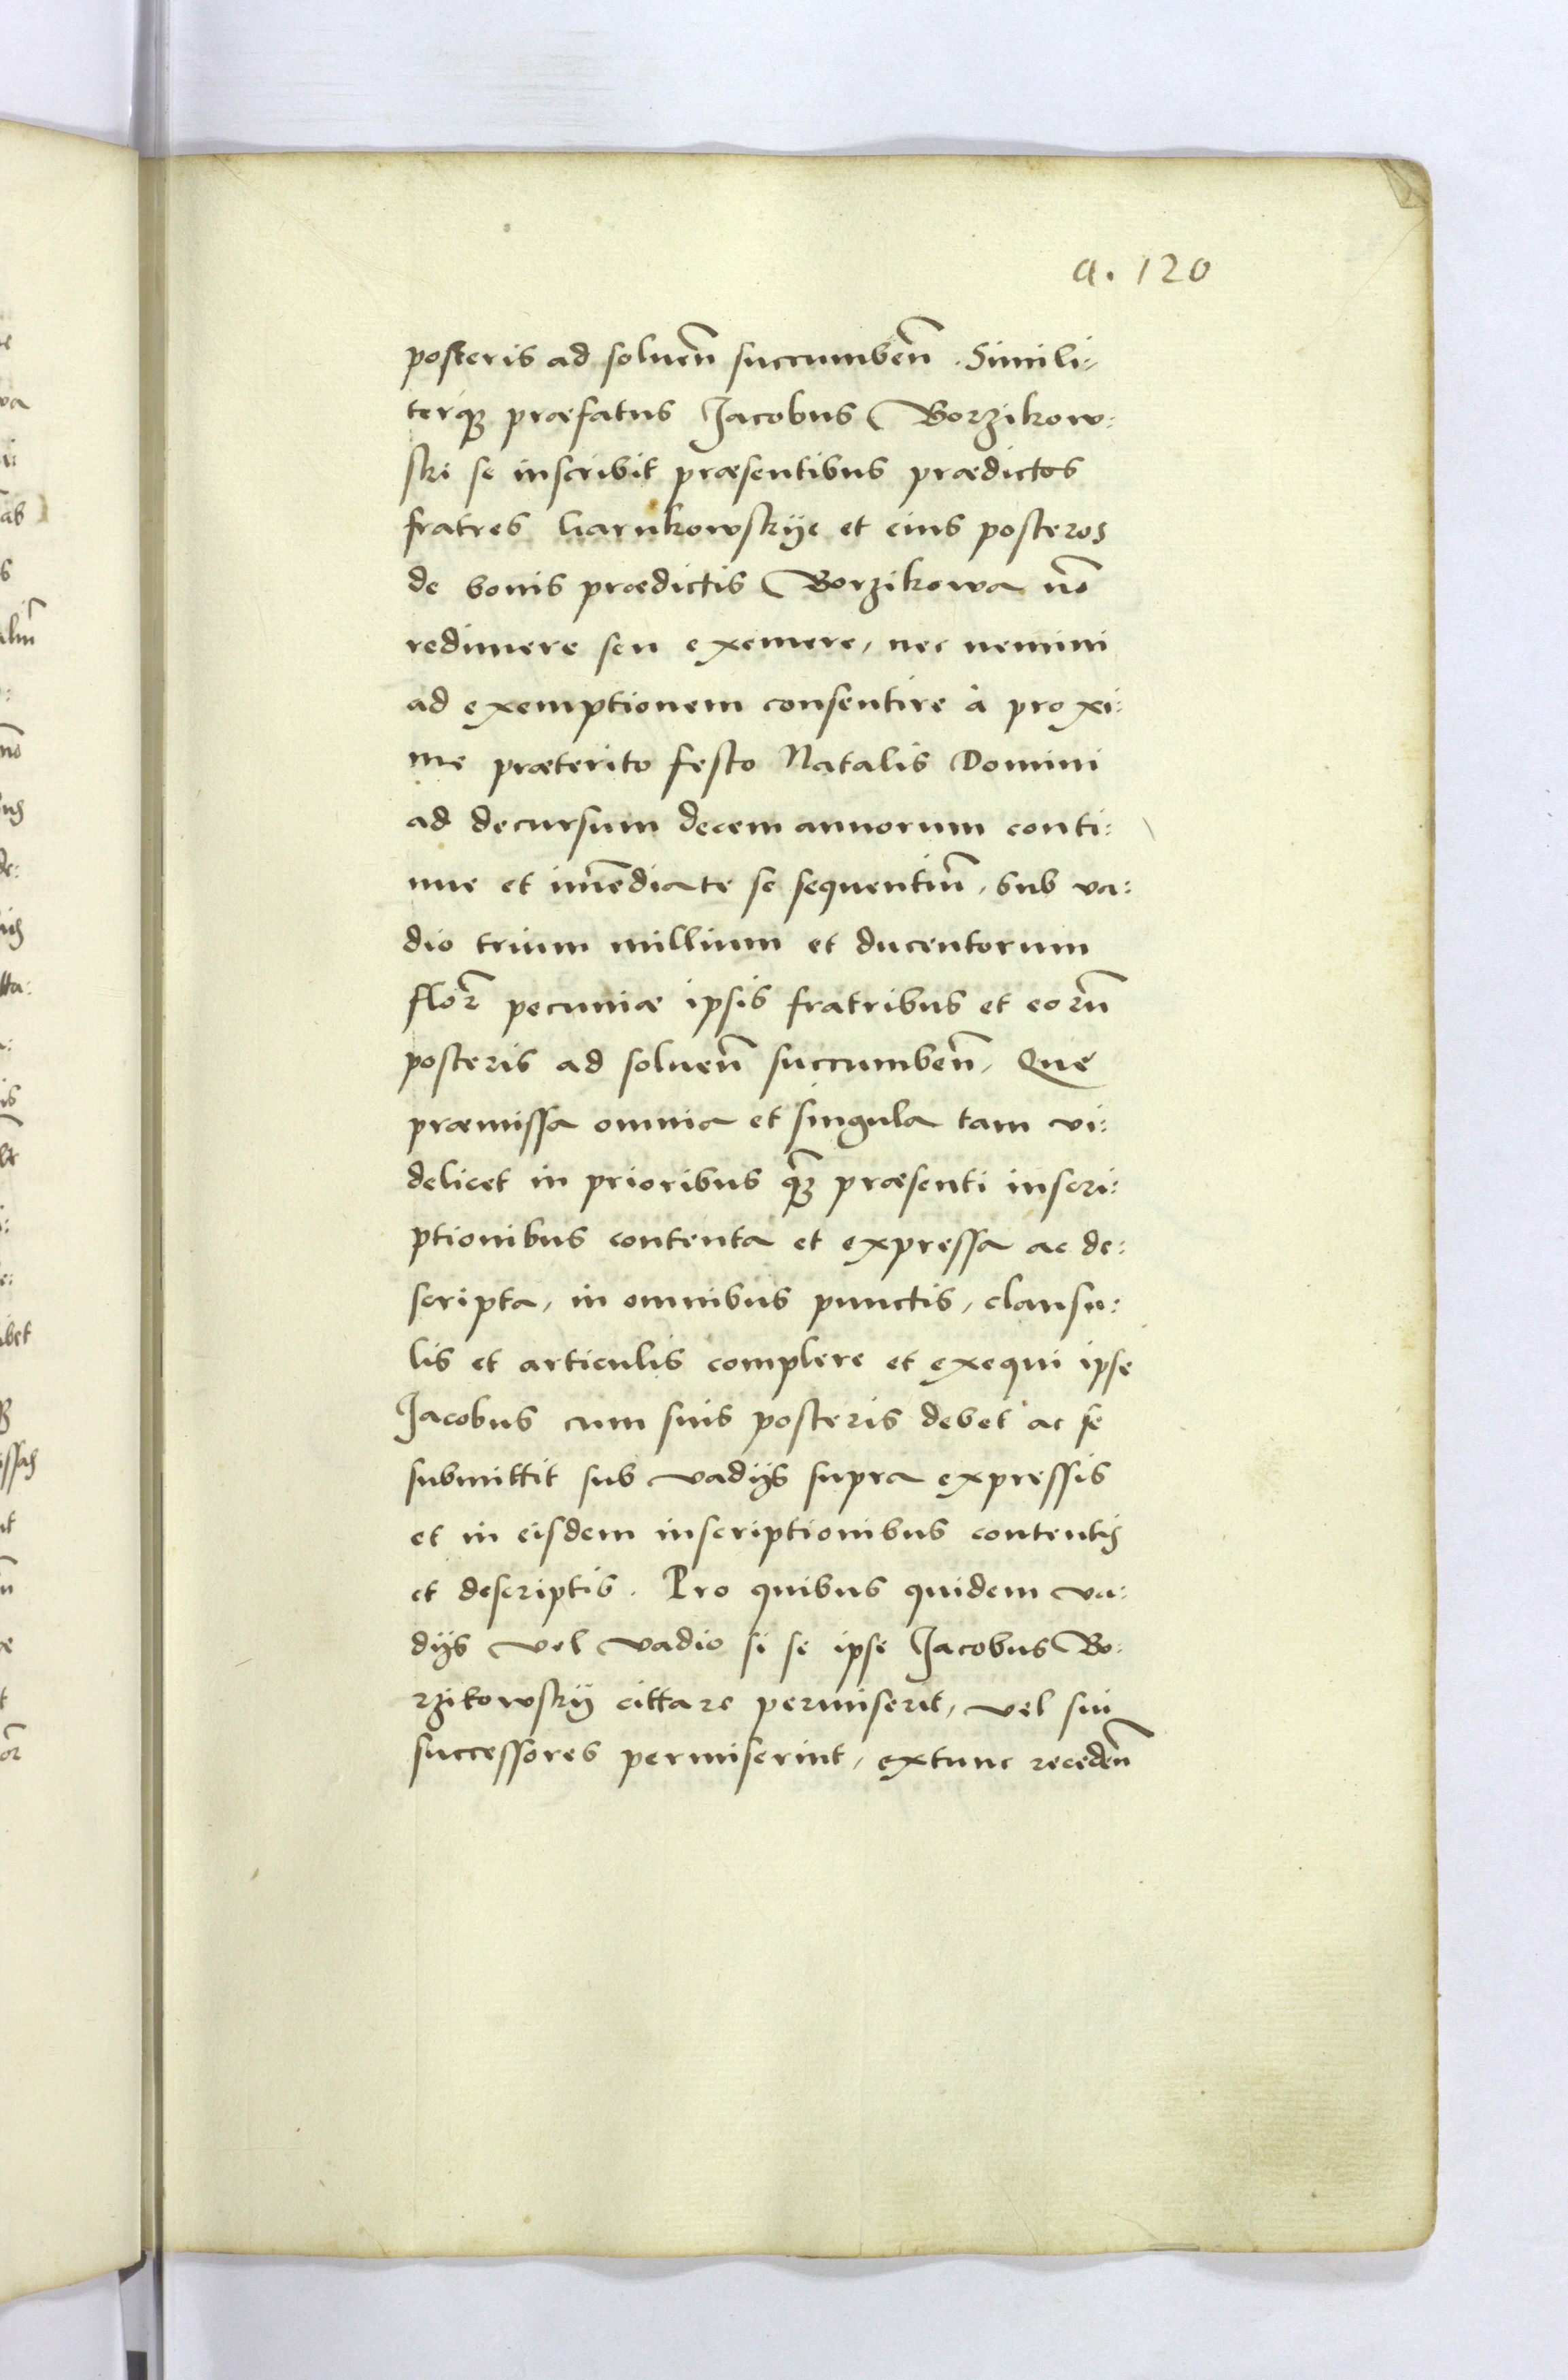 a. 120
posteris ad soluen̄ succumben̄. Simili:
terq; praefatus Jacobus Borzikow:
ski se inscribit praesentibus praedictos
fratres Karnkowskije et eius posteros
de bonis praedictis Borzikowa nō
redimere seu exemere, nec nemini
ad exemptionem consentire à proxi:
me praeterito festo Natalis Domini
ad decursum decem annorum conti:
nue et im̄ediate se sequentiū, sub va:
dio trium millium et ducentorum
flor̄ pecuniae ipsis fratribus et eorū
posteris ad soluen̄ succumben̄, Que
praemissa omnia et singula tam vi:
delicet in prioribus q̄3 praesenti inscri:
ptionibus contenta et expressa ac de:
scripta, in omnibus punctis, clausu:
lis et articulis complere et exequi ipse
Jacobus cum suis posteris debet ac se
submittit sub vadijs supra expressis
et in eisdem inscriptionibus contentis
et descriptis. Pro quibus quidem va:
dijs vel vadio si se ipse Jacobus Bo:
rzikowskij cittare permiserit, vel sui
successores permiserint, extunc receden̄